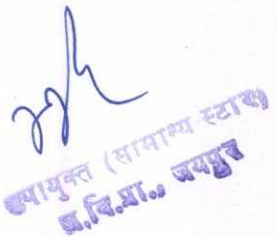 उपायुक्त (सामान्य स्टाफ)
ज.वि.प्रा., जयपुर